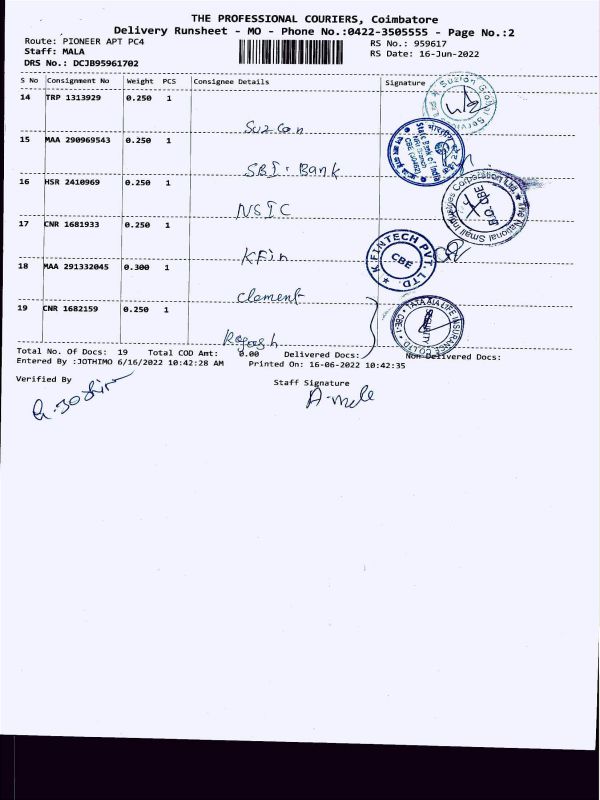 THE PROFESSIONAL COURIERS, Coimbatore
Delivery Runsheet - MO - Phone No.:0422-3505555 - Page No.:2
Route: PIONEER APT PC4
RS No.: 959617
Staff: MALA
RS Date: 16-Jun-2022
DRS No.: DCJB95961702
S No Consignment No Weight PCS Consignee Details Signature
14 TRP 1313929 0.250 1
Suzlon
15 MAA 290969543 0.250 1
SBI. Bank
16 HSR 2410969 0.250 1
NSIC
17 CNR 1681933 0.250 1
KFin
18 MAA 291332045 0.300 1
Clement
19 CNR 1682159 0.250 1
Suzlon Global Servic
State Bank of India
The National Small Industries Corporation Ltd.
B.O. CBE
K.FINTECH PVT. LTD.
CBE
TATA AIA LIFE INSURANCE CO LTD
CBE-1
Total No. Of Docs: 19 Total COD Amt: 0.00 Delivered Docs: Non Delivered Docs:
Entered By :JOTHIMO 6/16/2022 10:42:28 AM Printed On: 16-06-2022 10:42:35
Verified By
Staff Signature
A-male